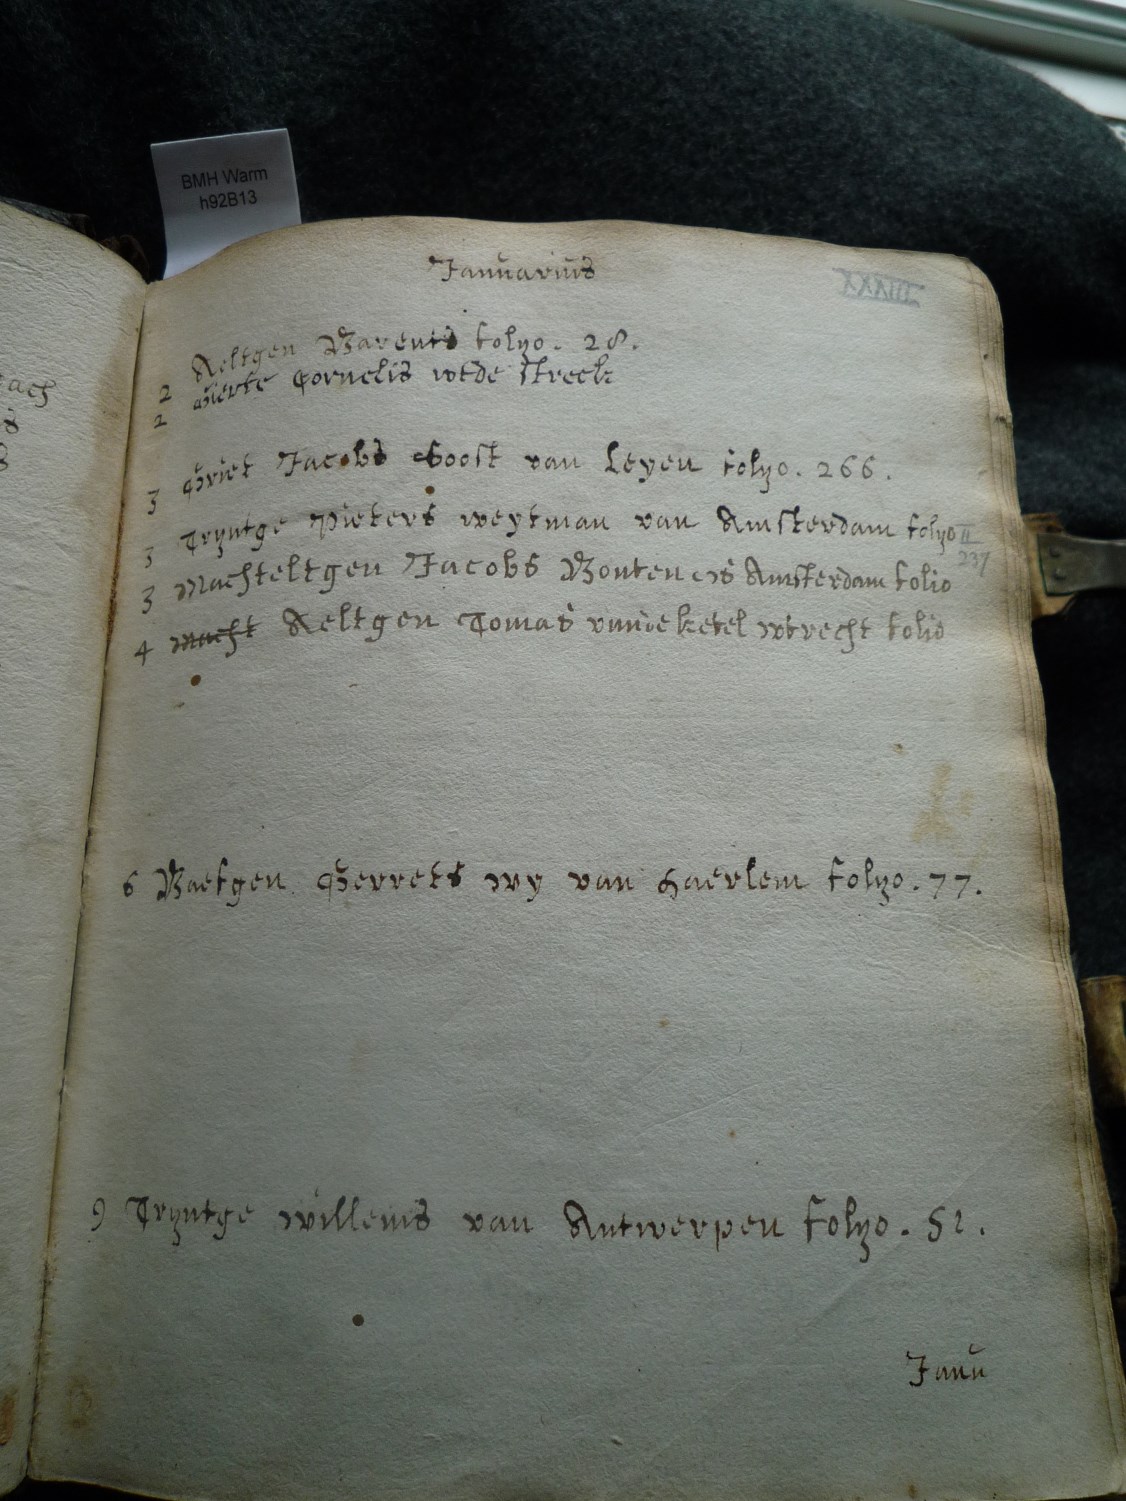 BMH Warm
h92B13
ach
Januarius
XXXIII
2 Aeltgen Barents folyo. 28.
2 Gierte Cornelis wtde streek
3 Griet Jacobs Soost van Leyen folyo. 266.
3 Tryntge Pieters weytman van Amsterdam folyo II 237
3 Machteltgen Jacobs Bontenos Amsterdam folio
4 Macht Aeltgen Tomas vinieketel wtrecht folio
6 Baefgen Gerrets wy van haerlem folyo. 77.
9 Tryntge willems van Antwerpen folyo. 51.
Janu